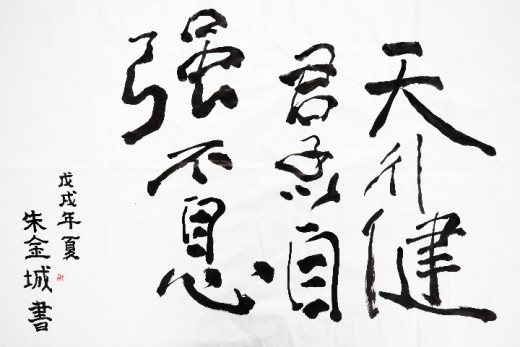 天行健
君子以自
强不息
戊戌年夏
朱金城書